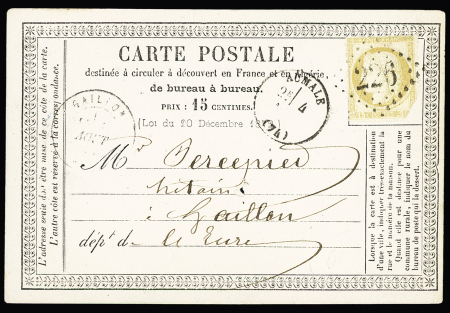 CARTE POSTALE
destinée à circuler à découvert en France et en Algérie,
de bureau à bureau.
PRIX : 15 CENTIMES.
(Loi du 20 Décembre
GAILLON
AOUT
MALE
4
(74)
226
M
Percepied
Notaire
à Gaillon
dépt de l'Eure
L'adresse seule doit être mise de ce côté de la carte.
L'autre côté est réservé à la correspondance.
Lorsque la carte est à destination
d'une ville, indiquer très-exactement la
rue et le numéro de la maison.
Quand elle est destinée pour une
commune rurale, indiquer le nom du
bureau de poste qui la dessert.